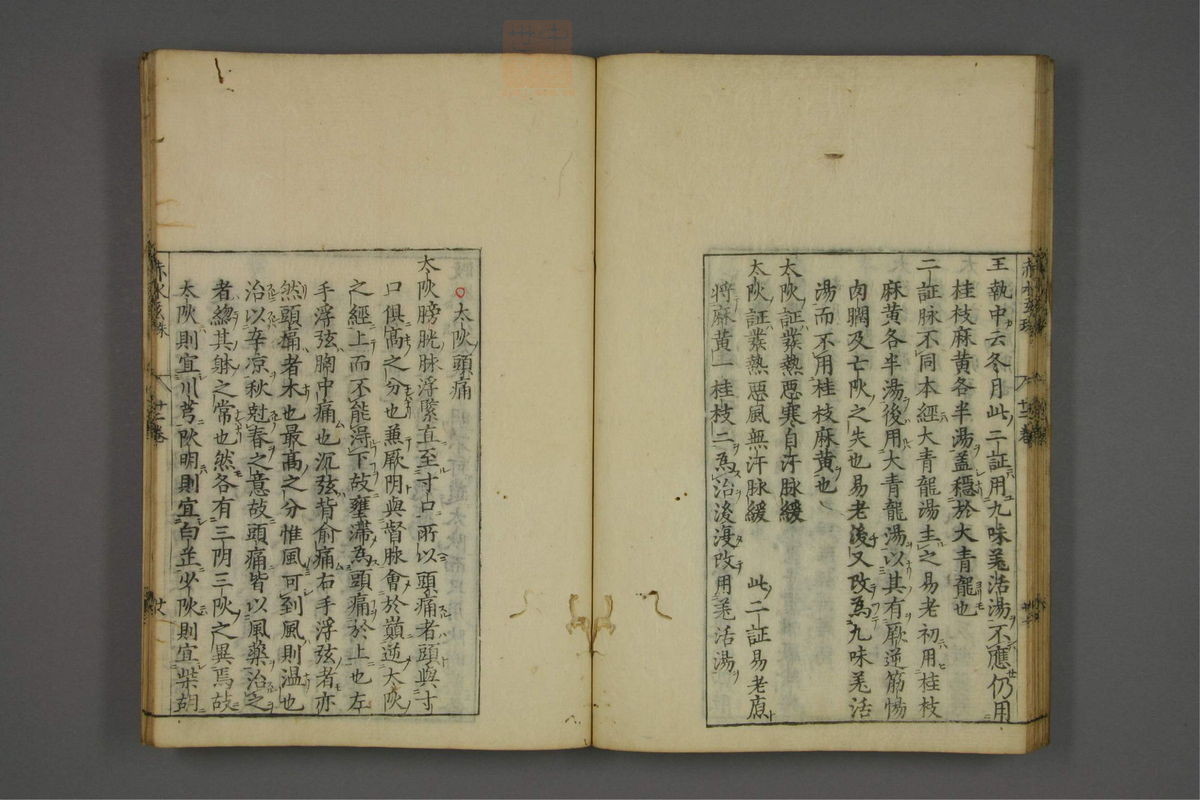 王執中云冬月此二証用九味羗活湯不應仍用
桂枝麻黄各半湯盖穏於大青龍也
二証脉不同本經大青龍湯主之易老初用桂枝
麻黄各半湯後用大青龍湯以其有厥逆筋惕
肉瞤及亡阦之失也易老後又改為九味羗活
湯而不用桂枝麻黄也
太阦証發熱惡寒自汗脉緩
太阦証發熱惡風無汗脉緩 此二証易老原
将麻黄一桂枝二為治後復改用羗活湯
赤水玄珠
○太阦頭痛
太阦膀胱脉浮緊直至寸口所以頭痛者頭與寸
口俱高之分也兼厥阴與督脉會於巔逆太阦
之經上而不能淂下故壅滞為頭痛於上也左
手浮弦胸中痛也沉弦背俞痛右手浮弦者亦
然頭痛者木也最高之分惟風可到風則溫也
治以辛凉秋尅春之意故頭痛皆以風藥治之
者緫其躰之常也然各有三阴三阦之異焉故
太阦則宜川芎阦明則宜白芷少阦則宜柴胡
赤水玄珠